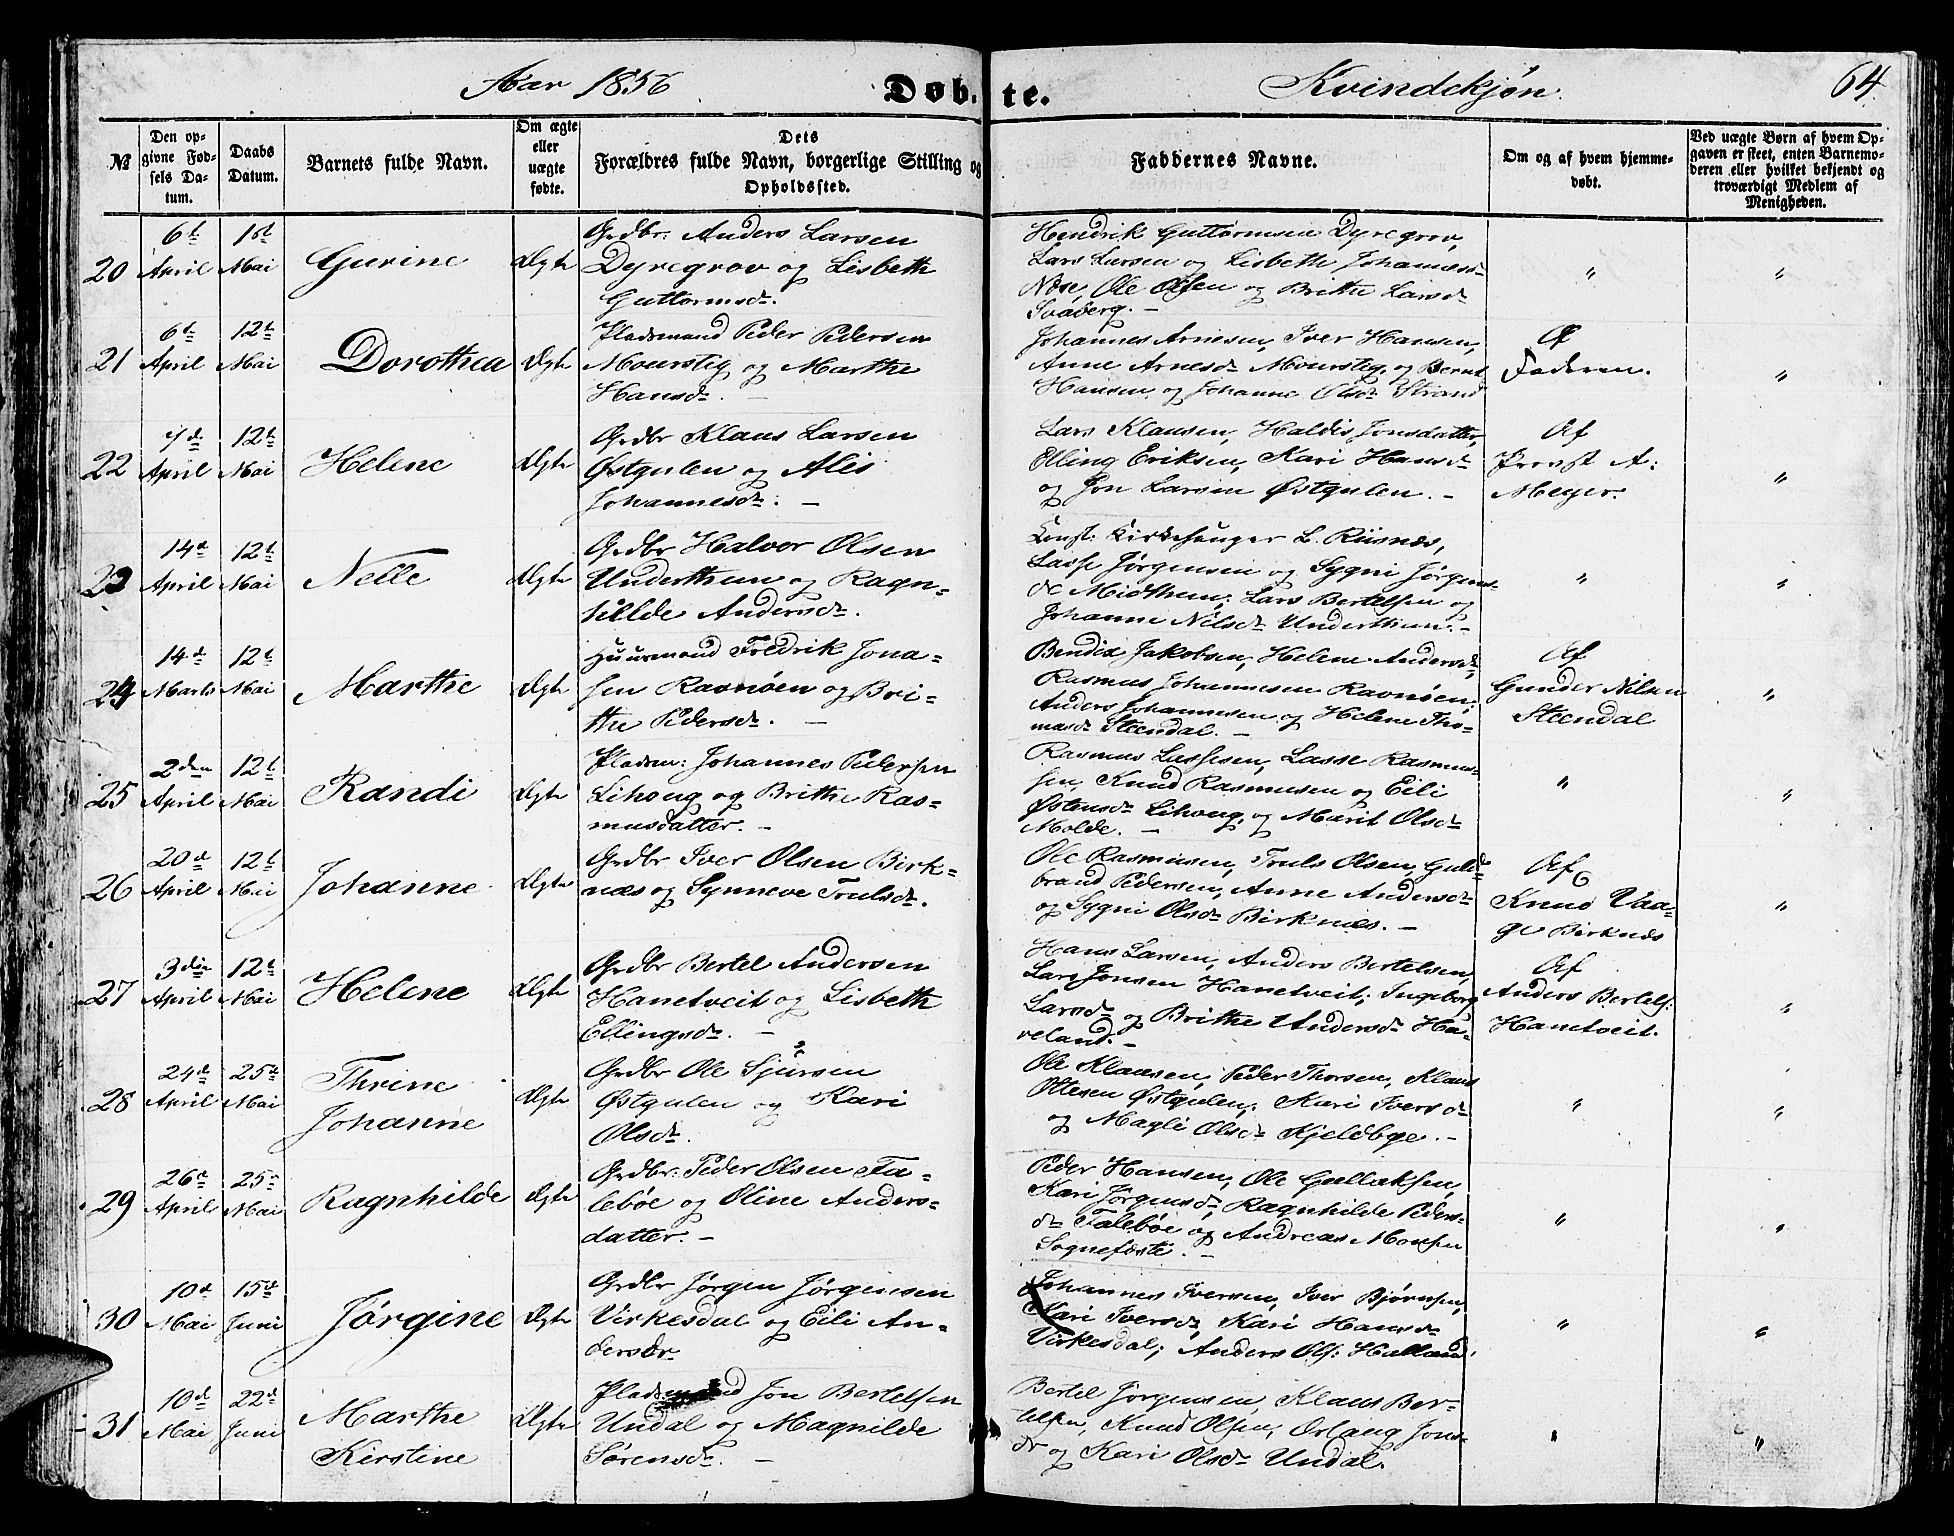 Aar 1856 Døb-te. Kvindekjøn. 64
№
Den opgivne Fødsels Datum.
Daabs Datum.
Barnets fulde Navn.
Om ægte eller uægte fødte.
Dets Forældres fulde Navn, borgerlige Stilling og Opholdssted.
Faddernes Navne.
Om og af hvem hjemmedøbt.
Ved uægte Børn af hvem Opgaven er skeet, enten Barnemoderen eller hvilket bekjendt og troværdigt Medlem af Menigheden.
20
6t April
1st Mai
Gurine
Ægte
Grdbr: Anders Larsen
Dyregrov og Lisbeth
Guttormsdr.
Hendrik Guttormsen Dyregrov,
Lars Larsen og Lisbeth Johannesd
Næse, Ole Olsen og Brithe Larsdr
Svaberg. -
"
"
21
6t April
12t Mai
Dorothea
Ægte
Pladsmand Peder Pedersen
Mourstig og Marthe
Hansdr.
Johannes Arnesen, Iver Hansen,
Anne Arnesdr Mourstig, og Bernt
Hansen og Johanne Olsdr Strand
Af
Faderen.
"
22
7d April
12t Mai
Helene
Ægte
Grdbr Klaus Larsen
Østgulen og Alis
Johannesdr: -
Lars Klausen, Haldis Jonsdatter,
Elling Eriksen, Kari Hansdr
og Jon Larsen Østgulen. -
Af
Provst A:
Meyer.
"
23
14d April
12t Mai
Nelle
Ægte
Grdbr Halvor Olsen
Underthun og Ragn-
hilde Andersdr.
Const: Kirkesanger L. Riisnæs,
Lasse Jørgensen og Sygni Jørgens-
dr Midthun; Lars Bertelsen og
Johanne Nilsdr Underthun. -
"
"
24
14d Marts
12t Mai
Marthe
Ægte
Huusmand Fredrik Jona-
sen Ravnøen og Bri-
the Pedersdr. -
Bendix Jakobsen, Helene Andersdr,
Rasmus Johannesen Ravnøen;
Anders Johannesen og Helene Tho-
masdr Steendal. -
Af
Gunder Nilsen
Steendal
"
25
2den April
12t Mai
Randi
Ægte
Pladsm: Johannes Pedersen
Lihoug og Brithe Ras-
musdatter. -
Rasmus Lassesen, Lasse Rasmus-
sen, Knud Rasmusen og Eili
Østensdr Lihoug, og Marit Olsdr
Molde. -
"
"
26
20d April
12t Mai
Johanne
Ægte
Grdbr Iver Olsen Birk-
næs og Synneve Trulsdr.
Ole Rasmusen, Truls Olsen, Guld-
brand Pedersen, Anne Andersdr
og Sygni Olsdr Birknæs. -
Af
Knud Vaa-
ge Birknæs
"
27
3die April
12t Mai
Helene
Ægte
Grdbr Bertel Andersen
Hanetveit og Lisbeth
Ellingsdr. -
Hans Larsen, Anders Bertelsen,
Lars Jonsen Hanetveit; Ingeborg
Larsdr og Brithe Andersdr Ha-
veland. -
Af
Anders Bertels:
Hanetveit.
"
28
24d April
25d Mai
Thrine
Johanne
Ægte
Grdbr Ole Sjursen
Østgulen og Kari
Olsdr.
Ole Klausen, Peder Thorsen, Klaus
Ottesen Østgulen; Kari Iversdr
og Magli Olsdr Kjeldbye. -
"
"
29
26d April
25d Mai
Ragnhilde
Ægte
Grdbr: Peder Olsen Ta-
lebøe og Oline Anders-
datter. -
Peder Hansen, Ole Gullaksen,
Kari Jørgensdr, Ragnhilde Peders-
dr Talebøe og Andreas Monsen
Sognefæste. -
"
"
30
10d Mai
15de Juni
Jørgine
Ægte
Grdbr Jørgen Jørgensen
Virkesdal og Eili An-
dersdr
Johannes Iversen, Iver Bjørnsen,
Kari Iversdr, Kari Hansdr
Virkesdal; Anders Ols: Halland.
"
"
31
10d Mai
22d Juni
Marthe
Kirstine
Ægte
Pladsmand Jon Bertelsen
Undal og Magnilde
Sørensdr. -
Bertel Jørgensen, Klaus Ber-
telsen, Knud Olsen, Orlaug Jons-
dr og Kari Olsdr Undal.
"
"